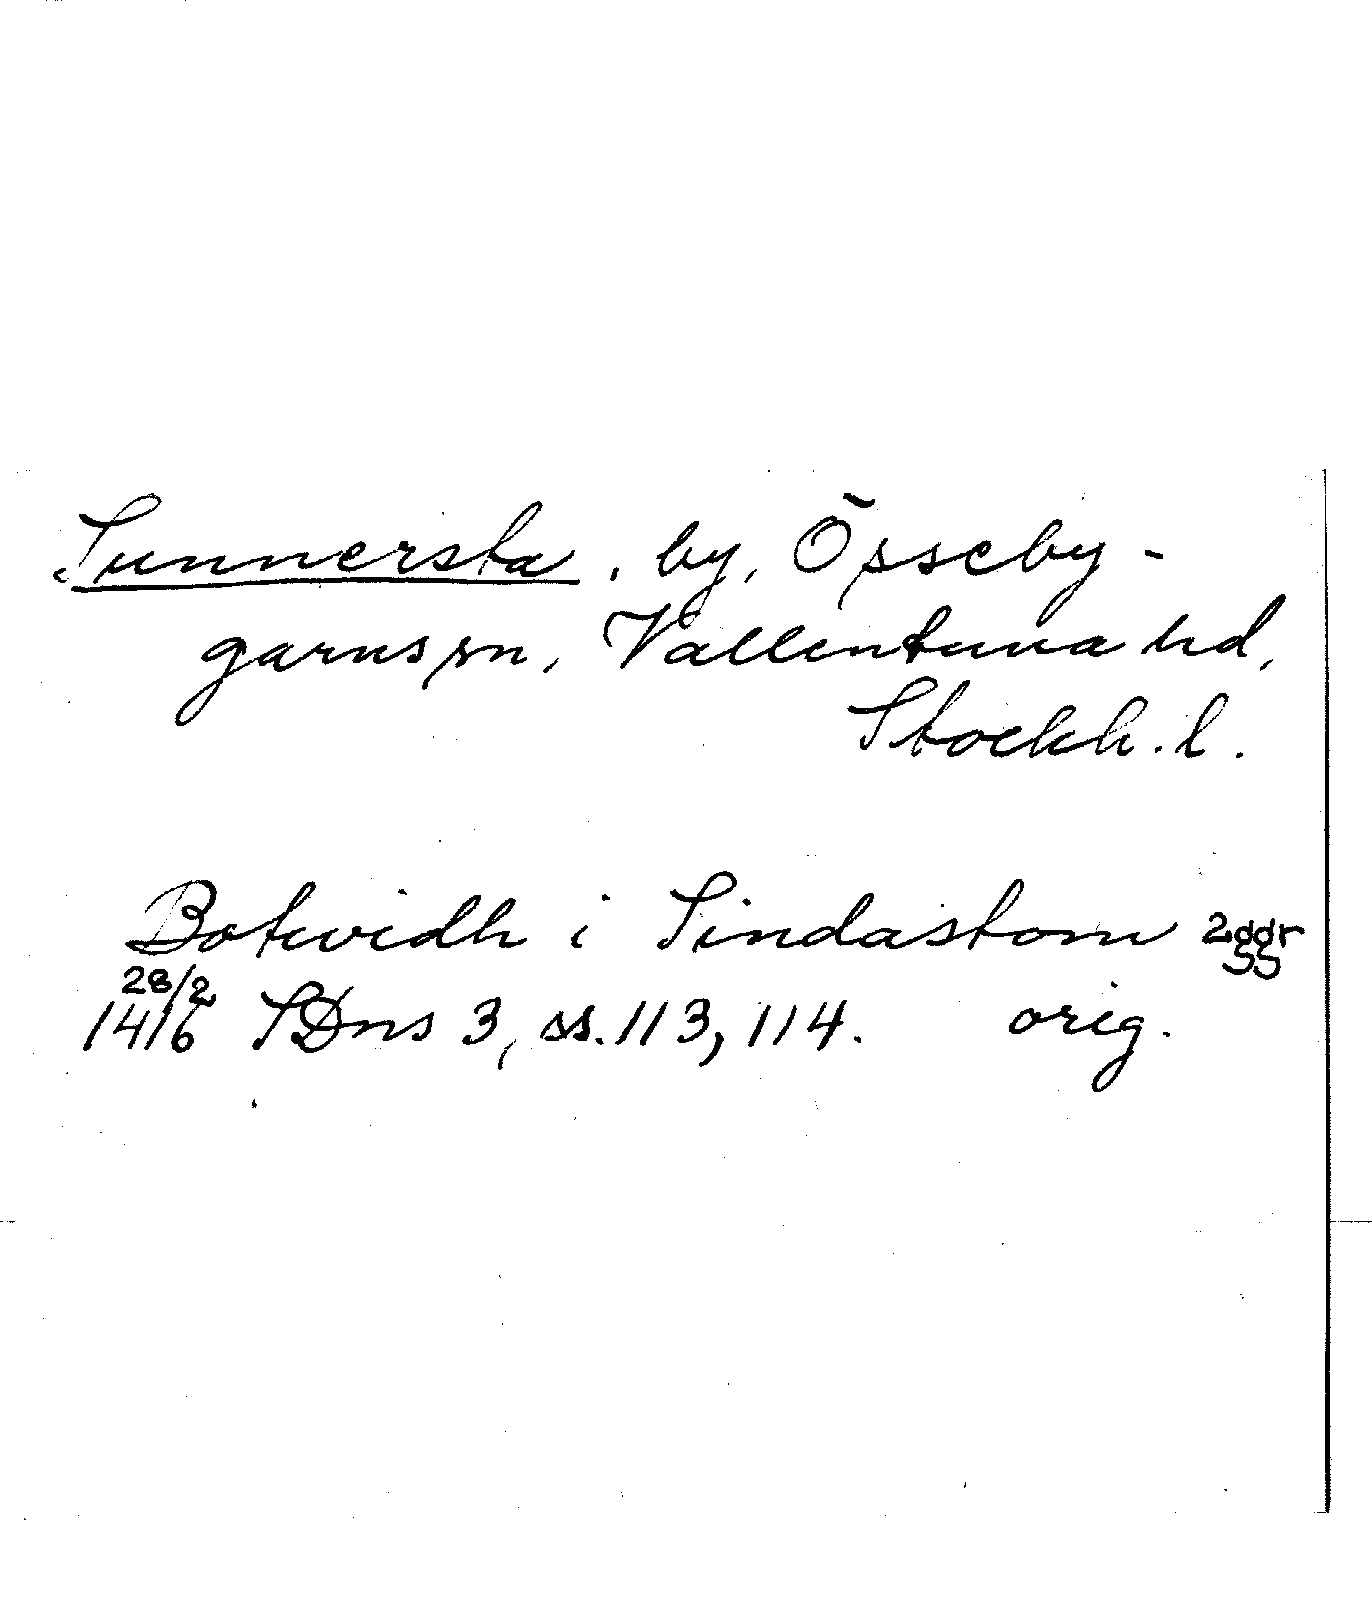 Sunnersta, by, Össeby-
garns sn, Vallentuna hd,
Stockh. l.
Botwidh i Sindastom 2ggr
28/2
1416 SDns 3, ss. 113, 114. orig.